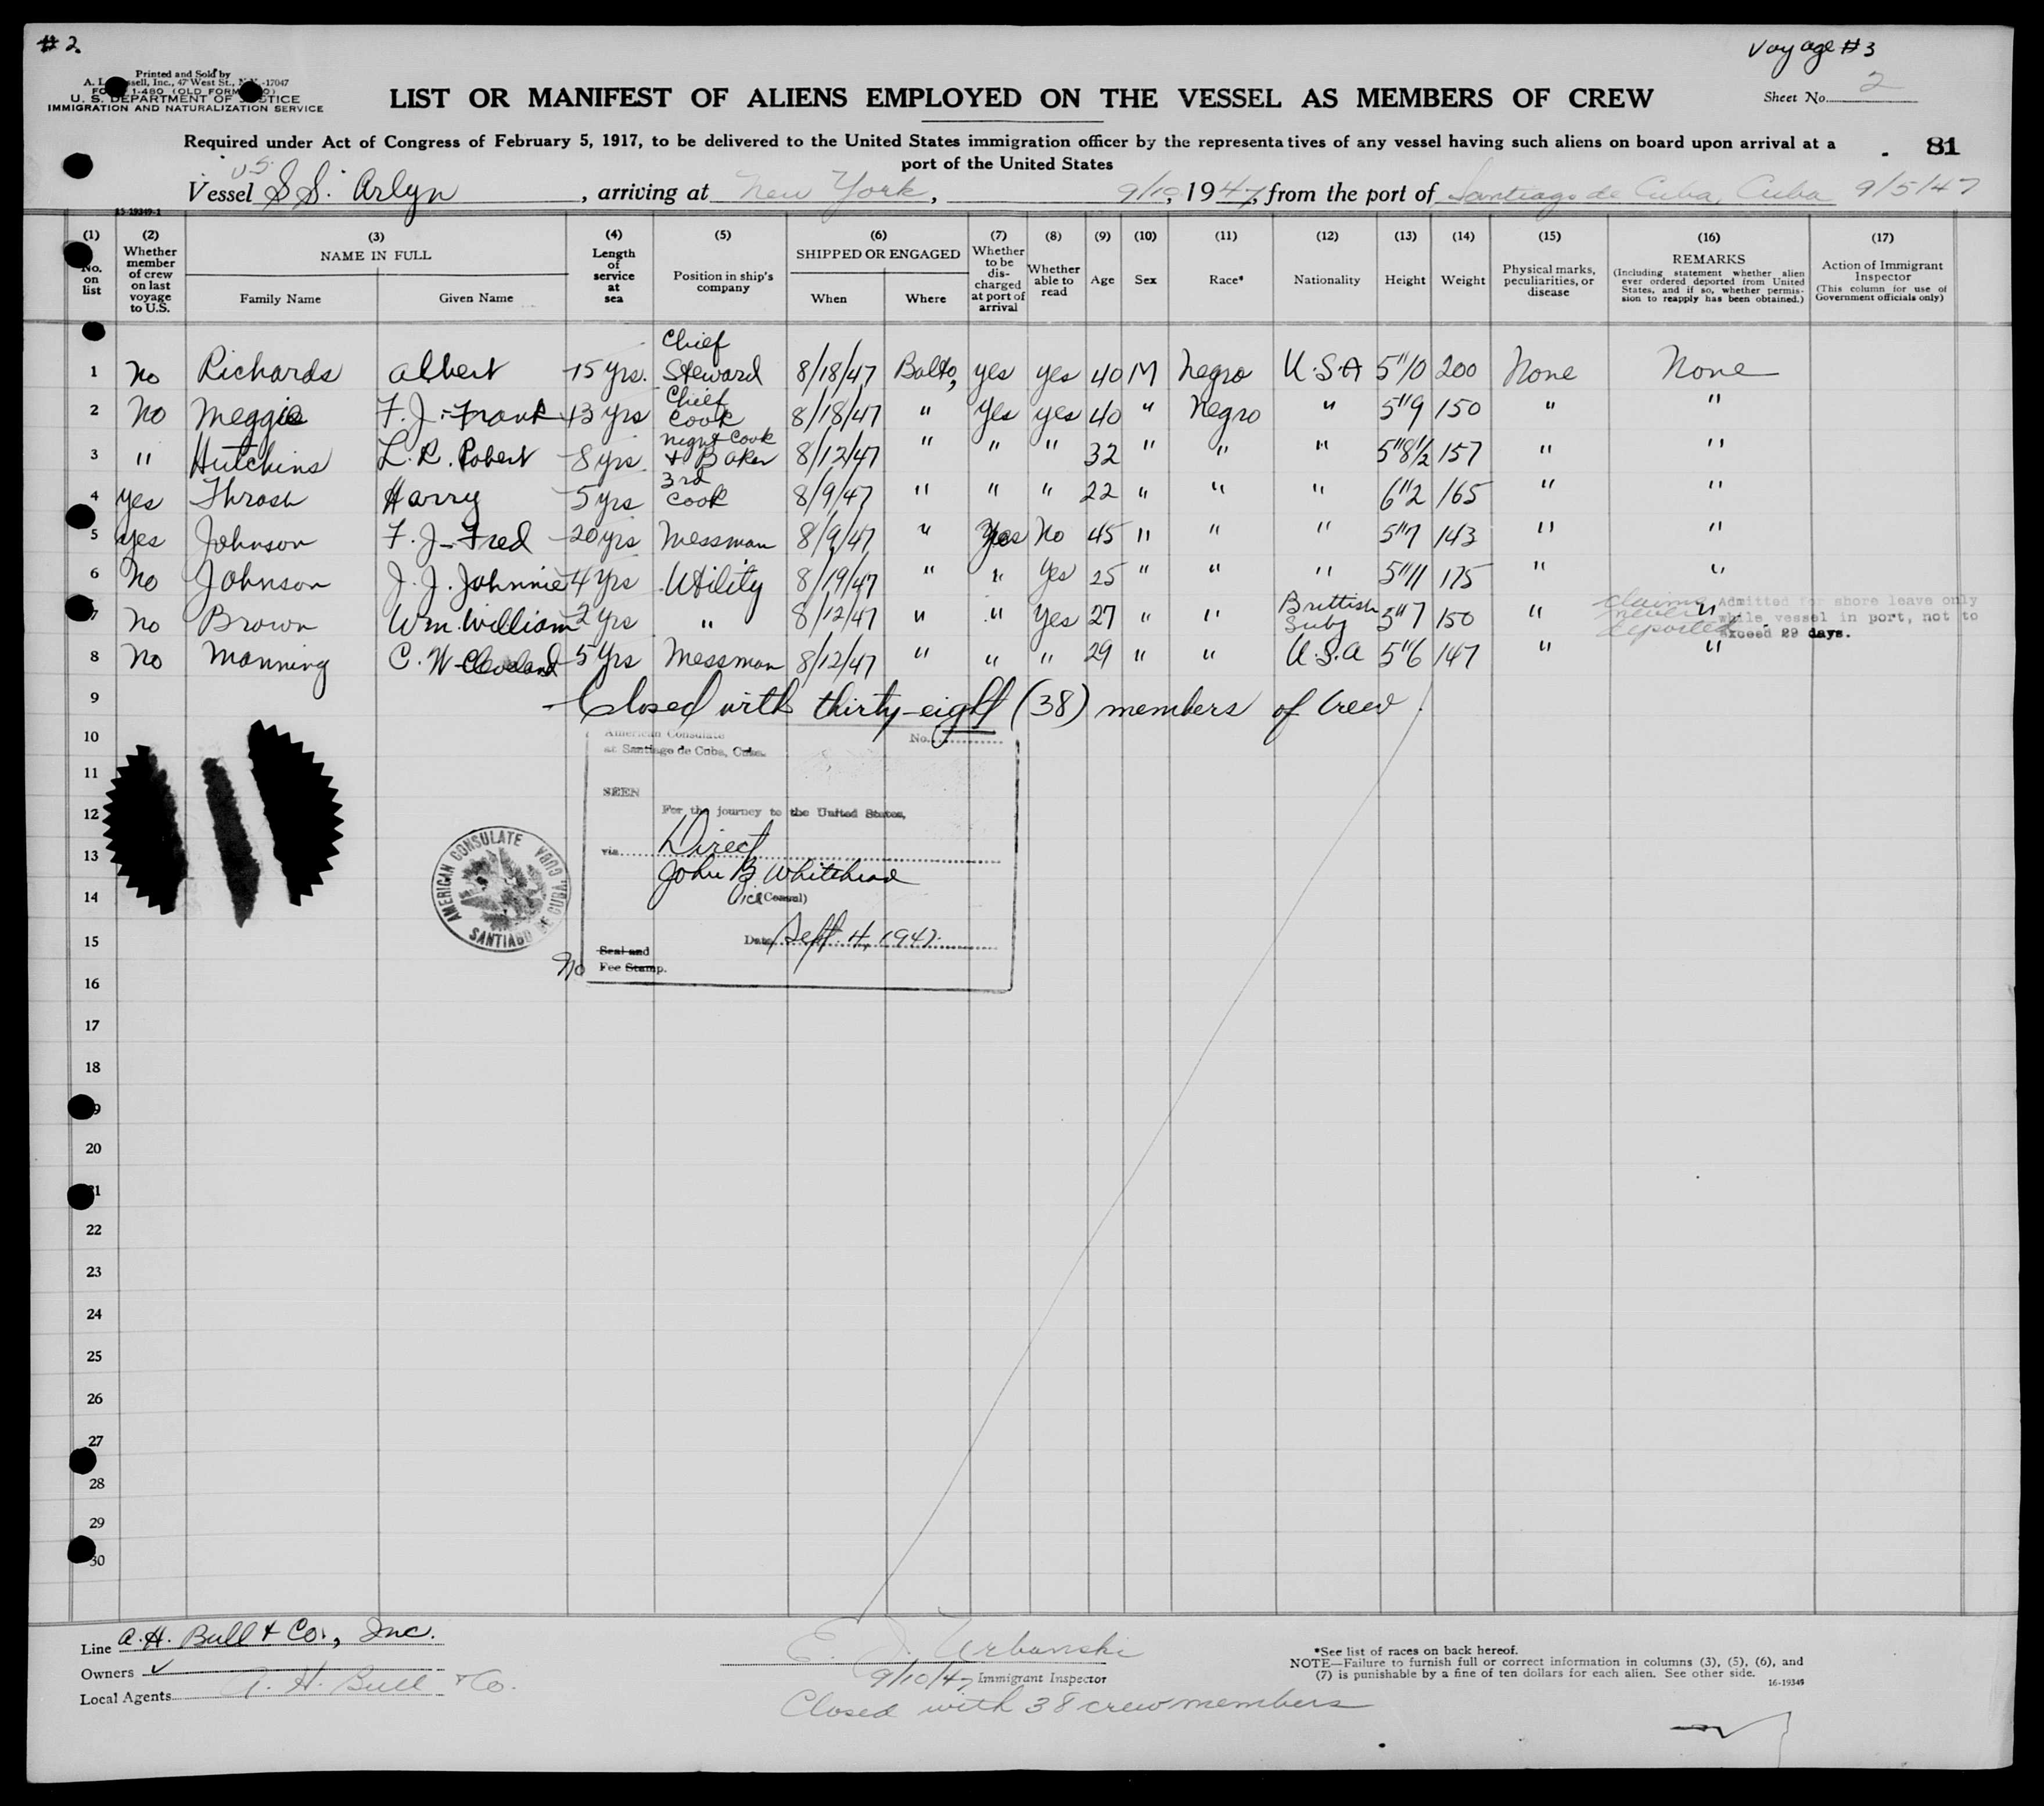 # 2
Voyage # 3
Printed and Sold by
Inc., 47 West St., -17047
1-480 (OLD FORM
U. S. DEPARTMENT OF JUSTICE
IMMIGRATION AND NATURALIZATION SERVICE
LIST OR MANIFEST OF ALIENS EMPLOYED ON THE VESSEL AS MEMBERS OF CREW
Sheet No. 2
Required under Act of Congress of February 5, 1917, to be delivered to the United States immigration officer by the representatives of any vessel having such aliens on board upon arrival at a
port of the United States
81
U.S.
Vessel S.S. Arlyn, arriving at New York, 9/10, 1947, from the port of Santiago de Cuba, Cuba 9/5/47
(1) No. on list
(2) Whether member of crew on last voyage to U.S.
(3) NAME IN FULL
Family Name
Given Name
(4) Length of service at sea
(5) Position in ship's company
(6) SHIPPED OR ENGAGED
When
Where
(7) Whether to be discharged at port of arrival
(8) Whether able to read
(9) Age
(10) Sex
(11) Race*
(12) Nationality
(13) Height
(14) Weight
(15) Physical marks, peculiarities, or disease
(16) REMARKS
(Including statement whether alien ever ordered deported from United States, and if so, whether permission to reapply has been obtained.)
(17) Action of Immigrant Inspector
(This column for use of Government officials only)
1 No Richards Albert 15 yrs. Chief Steward 8/18/47 Balto, yes yes 40 M Negro U.S.A 5"10 200 None None
2 No Meggie F. J. - Frank 13 yrs Chief Cook 8/18/47 " Yes yes 40 " Negro " 5"9 150 " "
3 " Hutchins L. R. Robert 8 yrs. Night Cook + Baker 8/12/47 " " " 32 " " " 5"8½ 157 " "
4 yes Thrash Harry 5 yrs 3rd Cook 8/9/47 " " " 22 " " " 6"2 165 " "
5 yes Johnson F. J - Fred 20 yrs Messman 8/9/47 " Yes No 45 " " " 5"7 143 " "
6 No Johnson J. J. Johnnie 4 yrs Utility 8/19/47 " " Yes 25 " " " 5"11 175 " "
7 No Brown Wm. William 2 yrs " 8/12/47 " " Yes 27 " " Brittish Subj 5"7 150 " "
claims never deported
Admitted for shore leave only
while vessel in port, not to
exceed 29 days.
8 No Manning C. W - Cleveland 5 yrs Messman 8/12/47 " " " 29 " " U.S.A 5"6 147 " "
9 Closed with thirty-eight (38) members of Crew.
10
11
12
13
14
15
16
17
18
19
20
21
22
23
24
25
26
27
28
29
30
American Consulate
at Santiago de Cuba, Cuba.
No.
SEEN
For the journey to the United States,
via Direct
John B Whitehead
Vice (Consul)
Date Sept. 4, 1947
Seal and
No Fee Stamp.
AMERICAN CONSULATE
SANTIAGO DE CUBA, CUBA
Line A. H. Bull & Co., Inc.
Owners ✓
Local Agents A. H. Bull & Co.
E. J. Urbanski
9/10/47 Immigrant Inspector
Closed with 38 crew members
*See list of races on back hereof.
NOTE—Failure to furnish full or correct information in columns (3), (5), (6), and
(7) is punishable by a fine of ten dollars for each alien. See other side.
16-19349